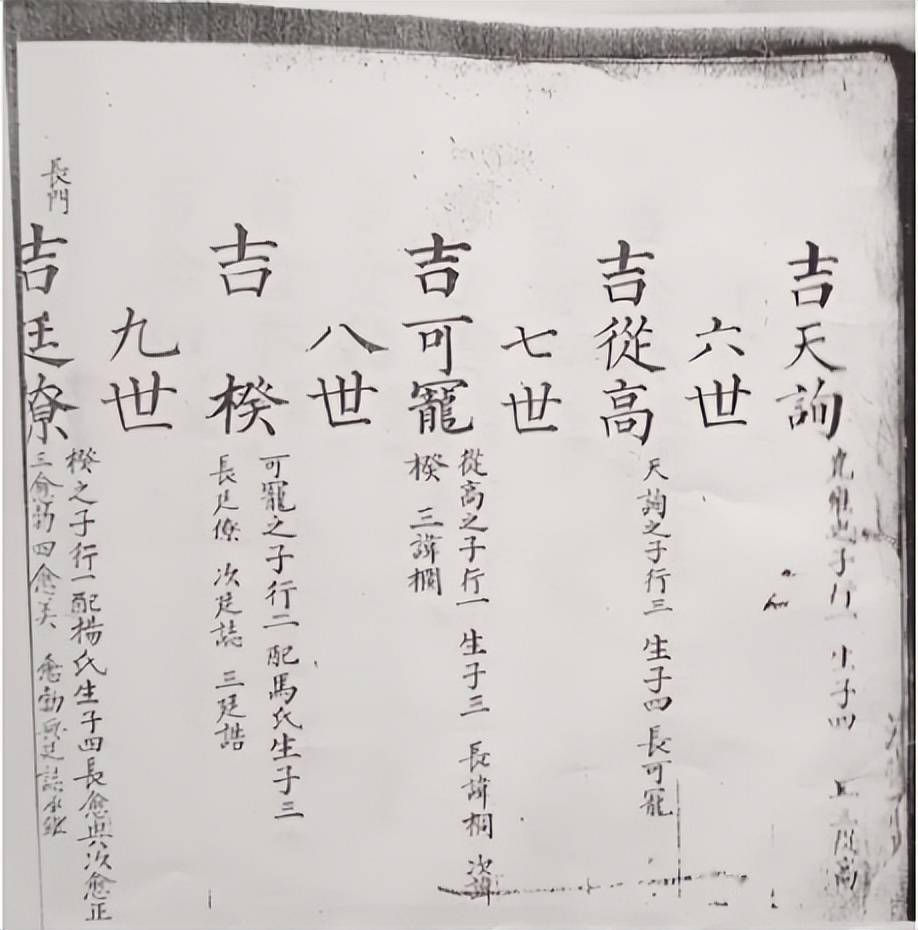 吉天詢
之子行一 生子四 高
六世
吉從高
天詢之子行三 生子四 長可寵
七世
吉可寵
從高之子行一 生子三 長諱桐 次諱
楑 三諱櫩
八世
吉楑
可寵之子行二 配馬氏生子三
長廷僚 次廷誌 三廷誥
九世
長門
吉廷僚
楑之子行一配楊氏生子四長愈興次愈正
三愈 四愈美 愈 廷誌